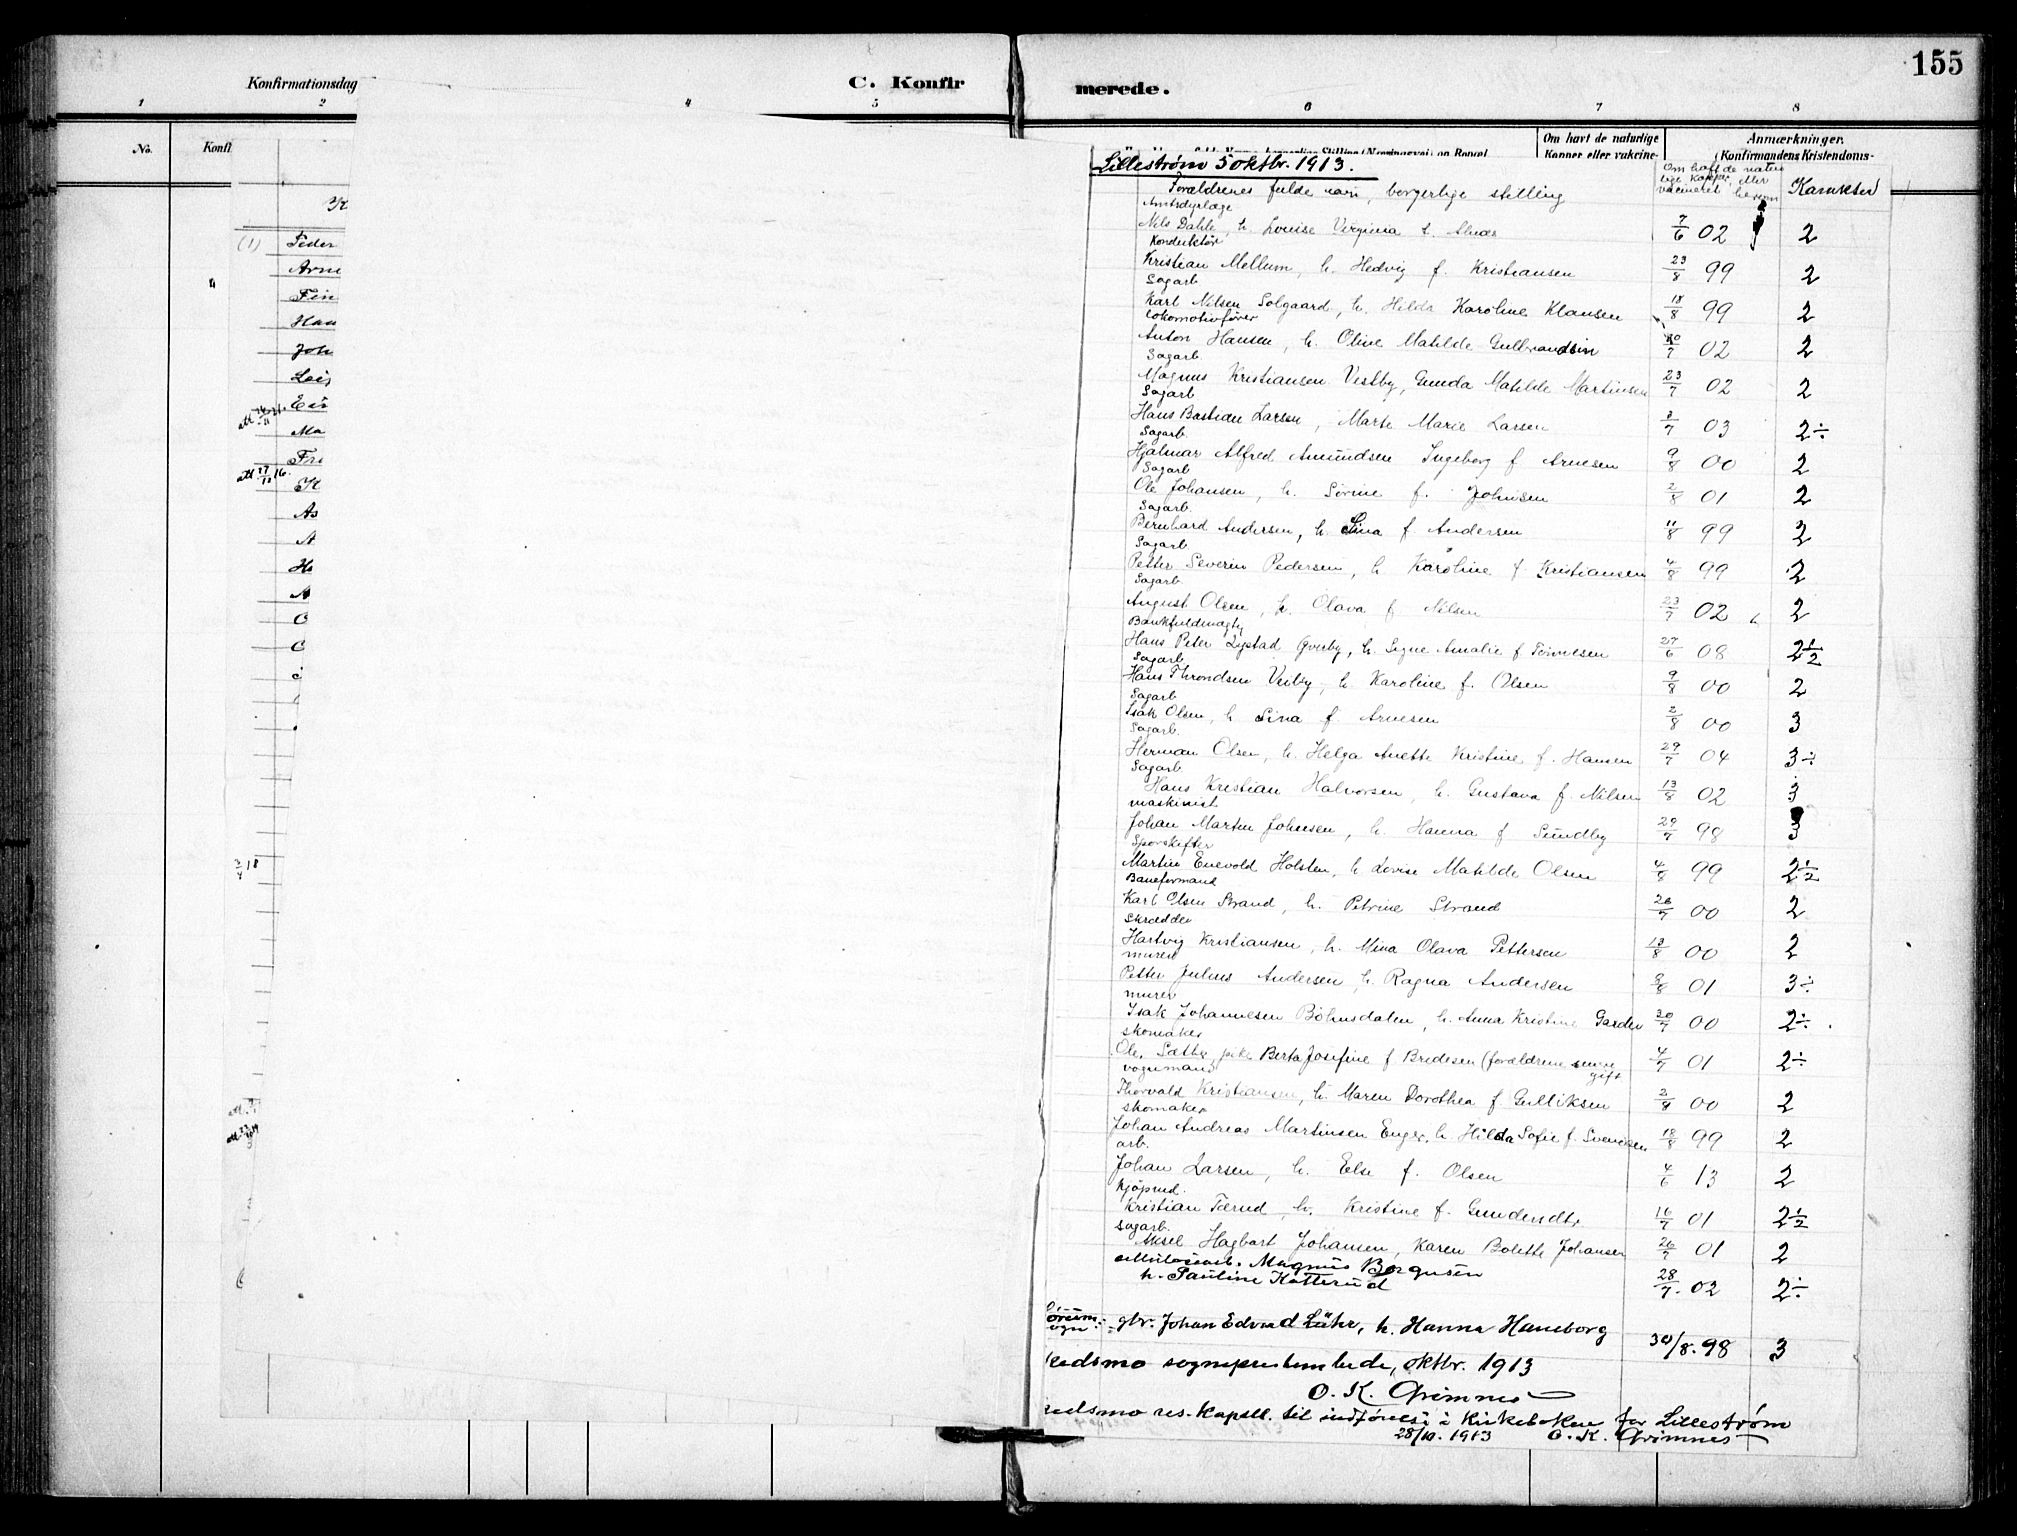 155
Konfirmationsdag
C. Konfir
merede.
1 2 4 5 6 7 8
No.
Konfi
Om havt de naturlige
Kopper eller vakcine-
Anmærkninger.
(Konfirmandens Kristendoms-
(1) Peder
Arne
Fin
Han
Joh
Leif
Ma
As
A
Lillestrøm 5 oktbr. 1913.
Forældrenes fulde navn, borgerlige stilling
Om haft de natur
lige kopper, eller
vacineret
Karakter
Amtsdyrlæge
Nils Dahle, h. Louise Virginia f. Alnæs 7/6 02 2
Konduktør
Kristian Mellum, h. Hedvig f. Kristiansen 23/8 99 2
Sagarb
Karl Nilsen Solgaard, h. Hilda Karoline Klausen 18/8 99 2
Lokomotivfører
Anton Hansen, h. Oline Matilde Gulbrandsen 30/7 02 2
Sagarb.
Magnus Kristiansen Vestby, Gunda Matilde Martinsen 23/7 02 2
Sagarb
Hans Bastian Larsen, Marte Marie Larsen 3/7 03 2÷
Sagarb.
Hjalmar Alfred Amundsen Ingeborg f Arnesen 9/8 00 2
Sagarb
Ole Johansen, h. Sørine f. Johnsen 2/8 01 2
Sagarb.
Bernhard Andersen, h. Lina f Andersen 11/8 99 2
Sagarb
Petter Severin Pedersen, h Karoline f Kristiansen 4/8 99 2
Sagarb
August Olsen, h. Olava f Nilsen 23/7 02 2
Bankfuldmægtg
Hans Peter Lystad Qverby, h. Signe Amalie f Tønnesen 27/6 08 2½
Sagarb
Hans Throndsen Vesby, h Karoline f. Olsen 9/8 00 2
Sagarb
Isak Olsen, h Lina f Arnesen 2/8 00 3
Sagarb.
Herman Olsen, h. Helga Anette Kristine f. Hansen 29/7 04 3÷
Sagarb
Hans Kristian Halvorsen, h. Gustava f. Nilsen 13/8 02 3
maskinist
Johan Martin Johnsen, h. Hanna f Sundby 29/7 98 3
Sporskifter
Martin Enevold Holsten, h Lovise Matilde Olsen 4/8 99 2½
Baneformand
Karl Olsen Strand, h. Petrine Strand 26/7 00 2
Skrædder
Hartvig Kristiansen, h. Mina Olava Pettersen 13/8 00 2
murer
Petter Julius Andersen, h. Ragna Andersen 9/8 01 3÷
murer
Isak Johannesen Böhnsdalen, h. Anna Kristine Garder 30/7 00 2÷
skomaker
Ole Sætbe, pike Berta Josefine f Bredesen (forældrene senere gift 4/7 01 2÷
vognmand
Thorvald Kristiansen, h. Maren Dorothea f. Gulliksen 2/8 00 2
skomaker
Johan Andreas Martinsen Enger, h. Hilda Sofie f. Svendsen 18/8 99 2
arb.
Johan Larsen, h. Else f. Olsen 4/6 13 2
Kjøpmd.
Kristian Tærud, h. Kristine f. Gundendtr 16/7 01 2½
sagarb.
Aksel Hagbart Johansen, Karen Bolette Johansen 26/7 01 2
Magnus Borgersen
h. Pauline Katterud 28/7. 02 2÷
gbr. Johan Edvard Lühr, h. Hanna Haneborg 30/8. 98 3
kedsmo sogneprestembede, oktbr. 1913
O. K. Grimnes
kedsmo res. kapell. til indførelse i kirkeboken for Lillestrøm
28/10. 1913 O. K. Grimnes